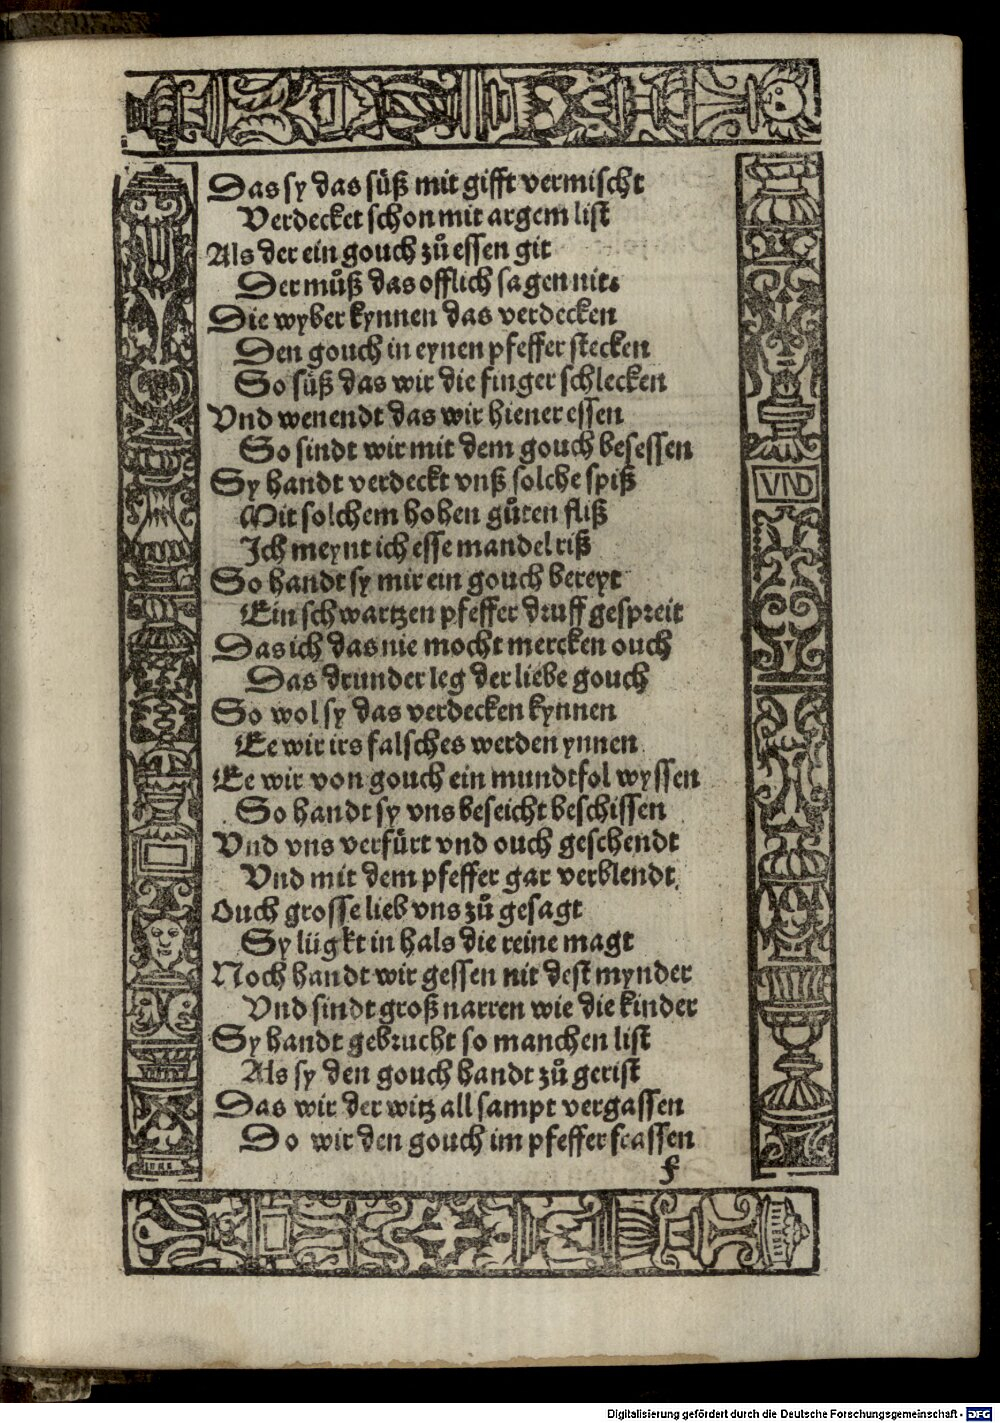 Das sy das süß mit gifft vermischt
Verdecket schon mit argem list
Als der ein gouch zů essen git
Der můß das offlich sagen nit.
Die wyber kynnen das verdecken
Den gouch in eynen pfeffer stecken
So süß das wir die finger schlecken
Vnd wenendt das wir hiener essen
So sindt wir mit dem gouch besessen
Sy handt verdeckt vnß solche spiß
Mit solchem hohen gůten fliß
Ich meynt ich esse mandel riß
So handt sy mir ein gouch bereyt
Ein schwartzen pfeffer druff gespreit
Das ich das nie mocht mercken ouch
Das drunder leg der liebe gouch
So wol sy das verdecken kynnen
Ee wir irs falsches werden ynnen
Ee wir von gouch ein mundtfol wyssen
So handt sy vns beseicht beschissen
Vnd vns verfürt vnd ouch geschendt
Vnd mit dem pfeffer gar verblendt,
Ouch grosse lieb vns zů gesagt
Sy liigkt in hals die reine magt
Noch handt wir gessen nit dest mynder
Vnd sindt groß narren wie die kinder
Sy handt gebrucht so manchen list
Als sy den gouch handt zů gerist
Das wir der witz all sampt vergassen
Do wir den gouch im pfeffer frassen
f
VND
Digitalisierung gefördert durch die Deutsche Forschungsgemeinschaft - DFG